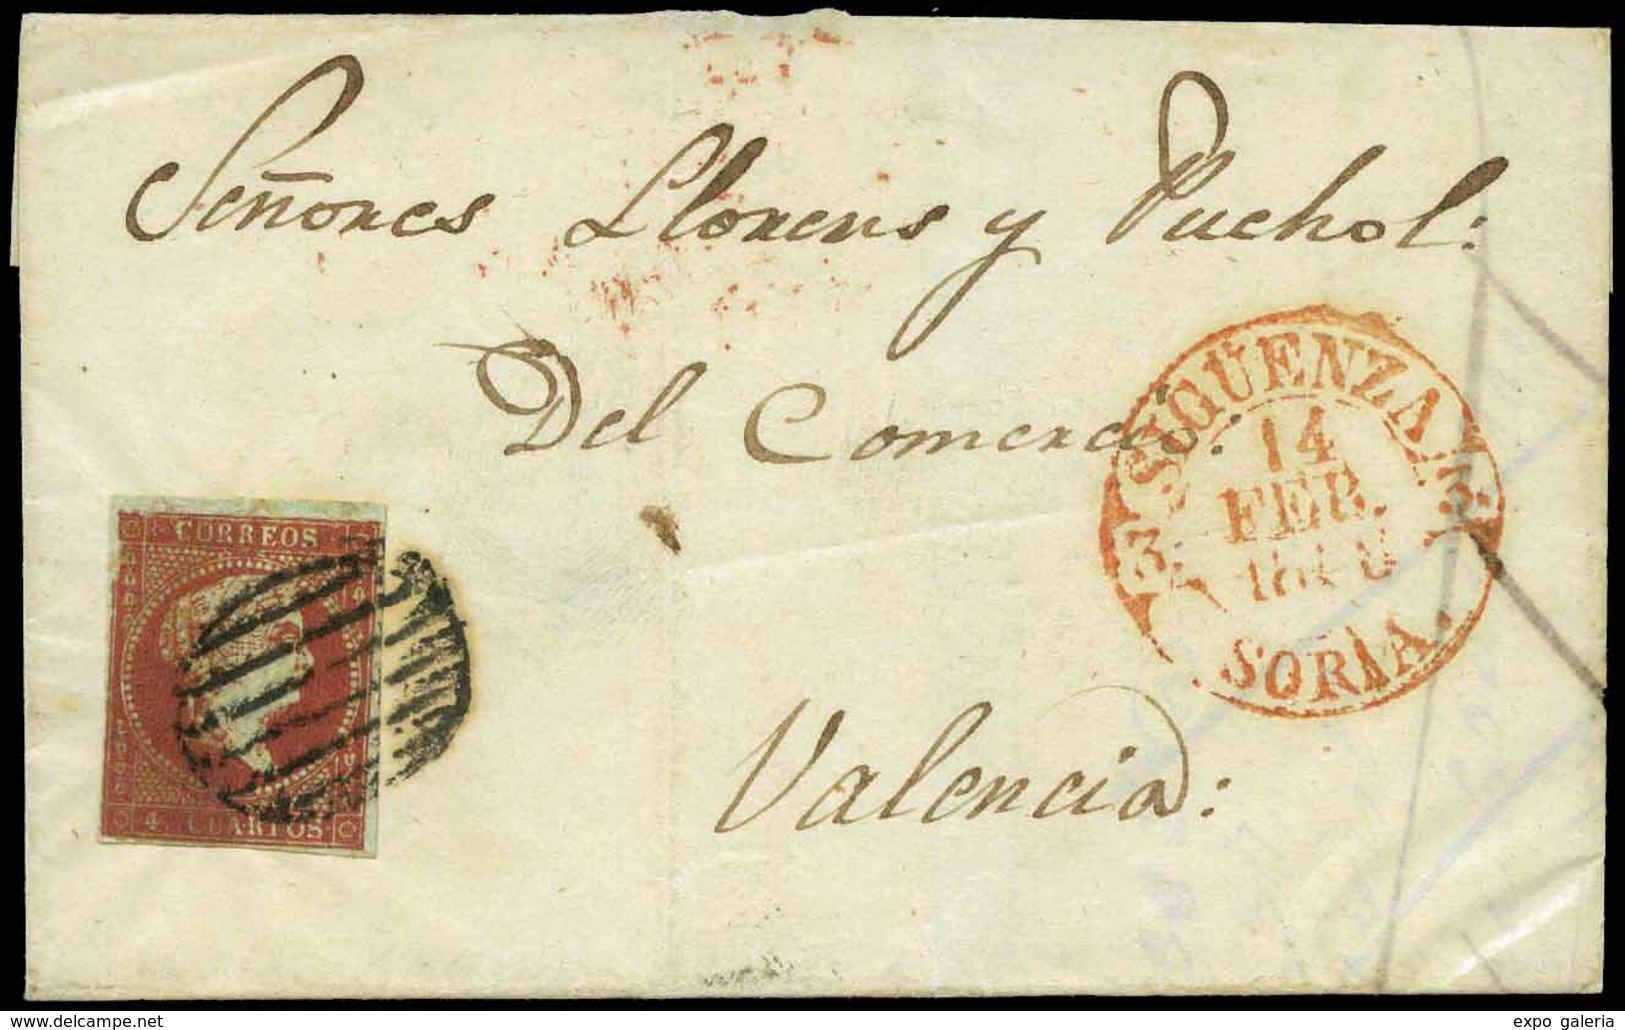 Señores Llorens y Puchol:
Del Comercio:
SIGUENZA
14
FEB.
3 3
SORIA.
CORREOS
4 CUARTOS
Valencia:
www.delcampe.net
expo galeria